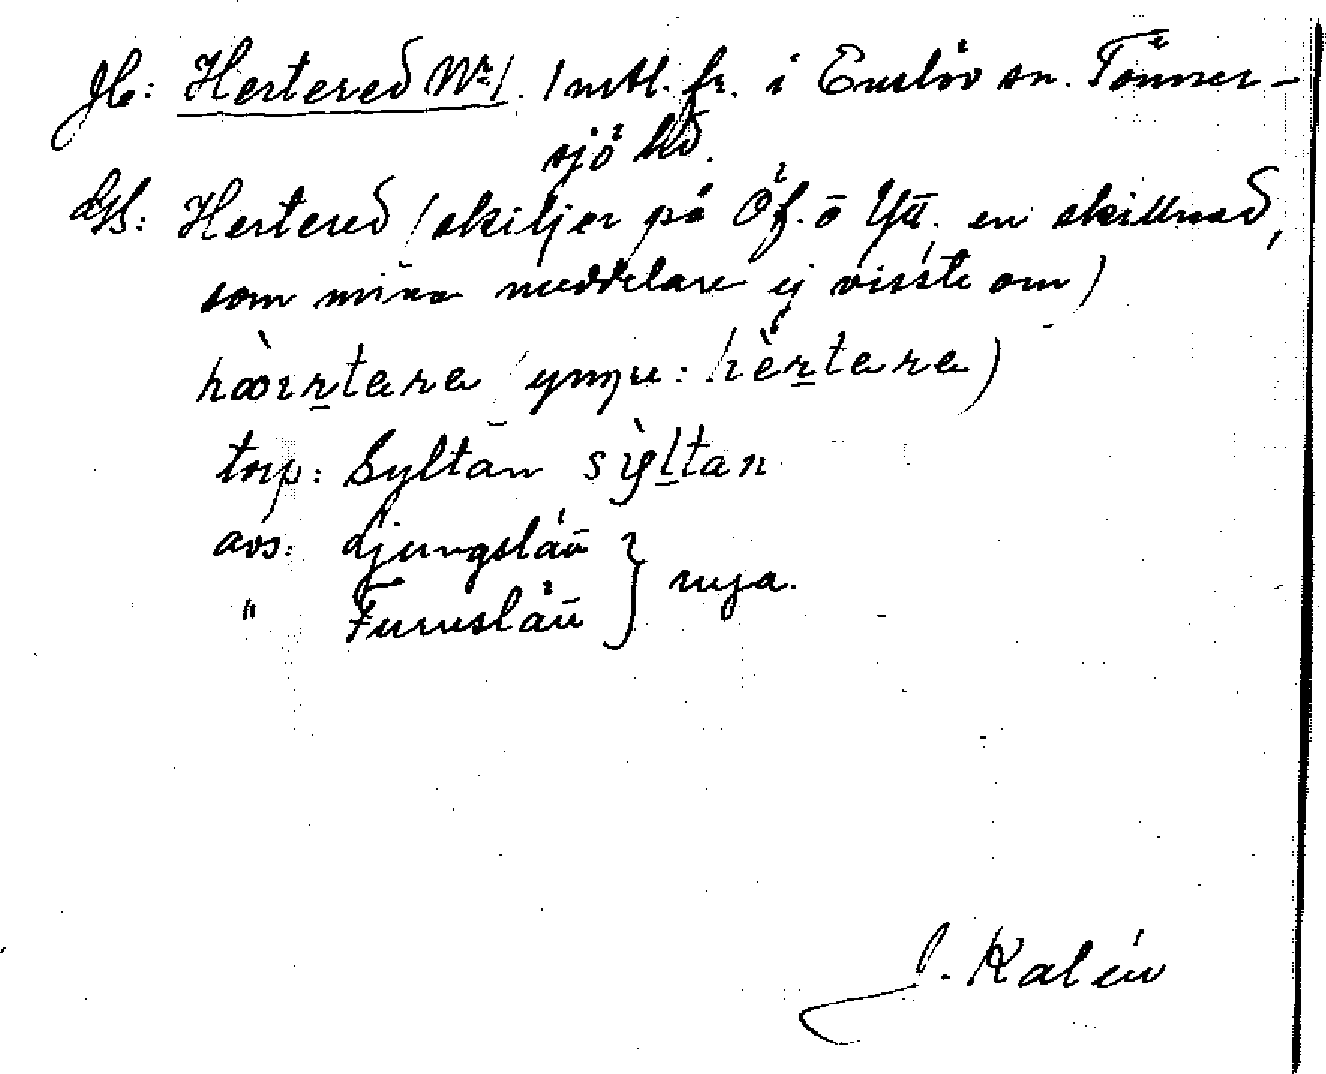 Jb: Hertered No 1. 1 mtl. fr. i Enslöv sn. Tönner-
sjö hd.
GS: Hertered (skiljer på Öf. o Yt. en skillnad,
som mina meddelare ej visste om)
hæ̀rtara (yngre: hèrtara)
torp: Syltan sỳltan
avs: Ljungslätt } nya.
" Furuslätt
J. Kalén